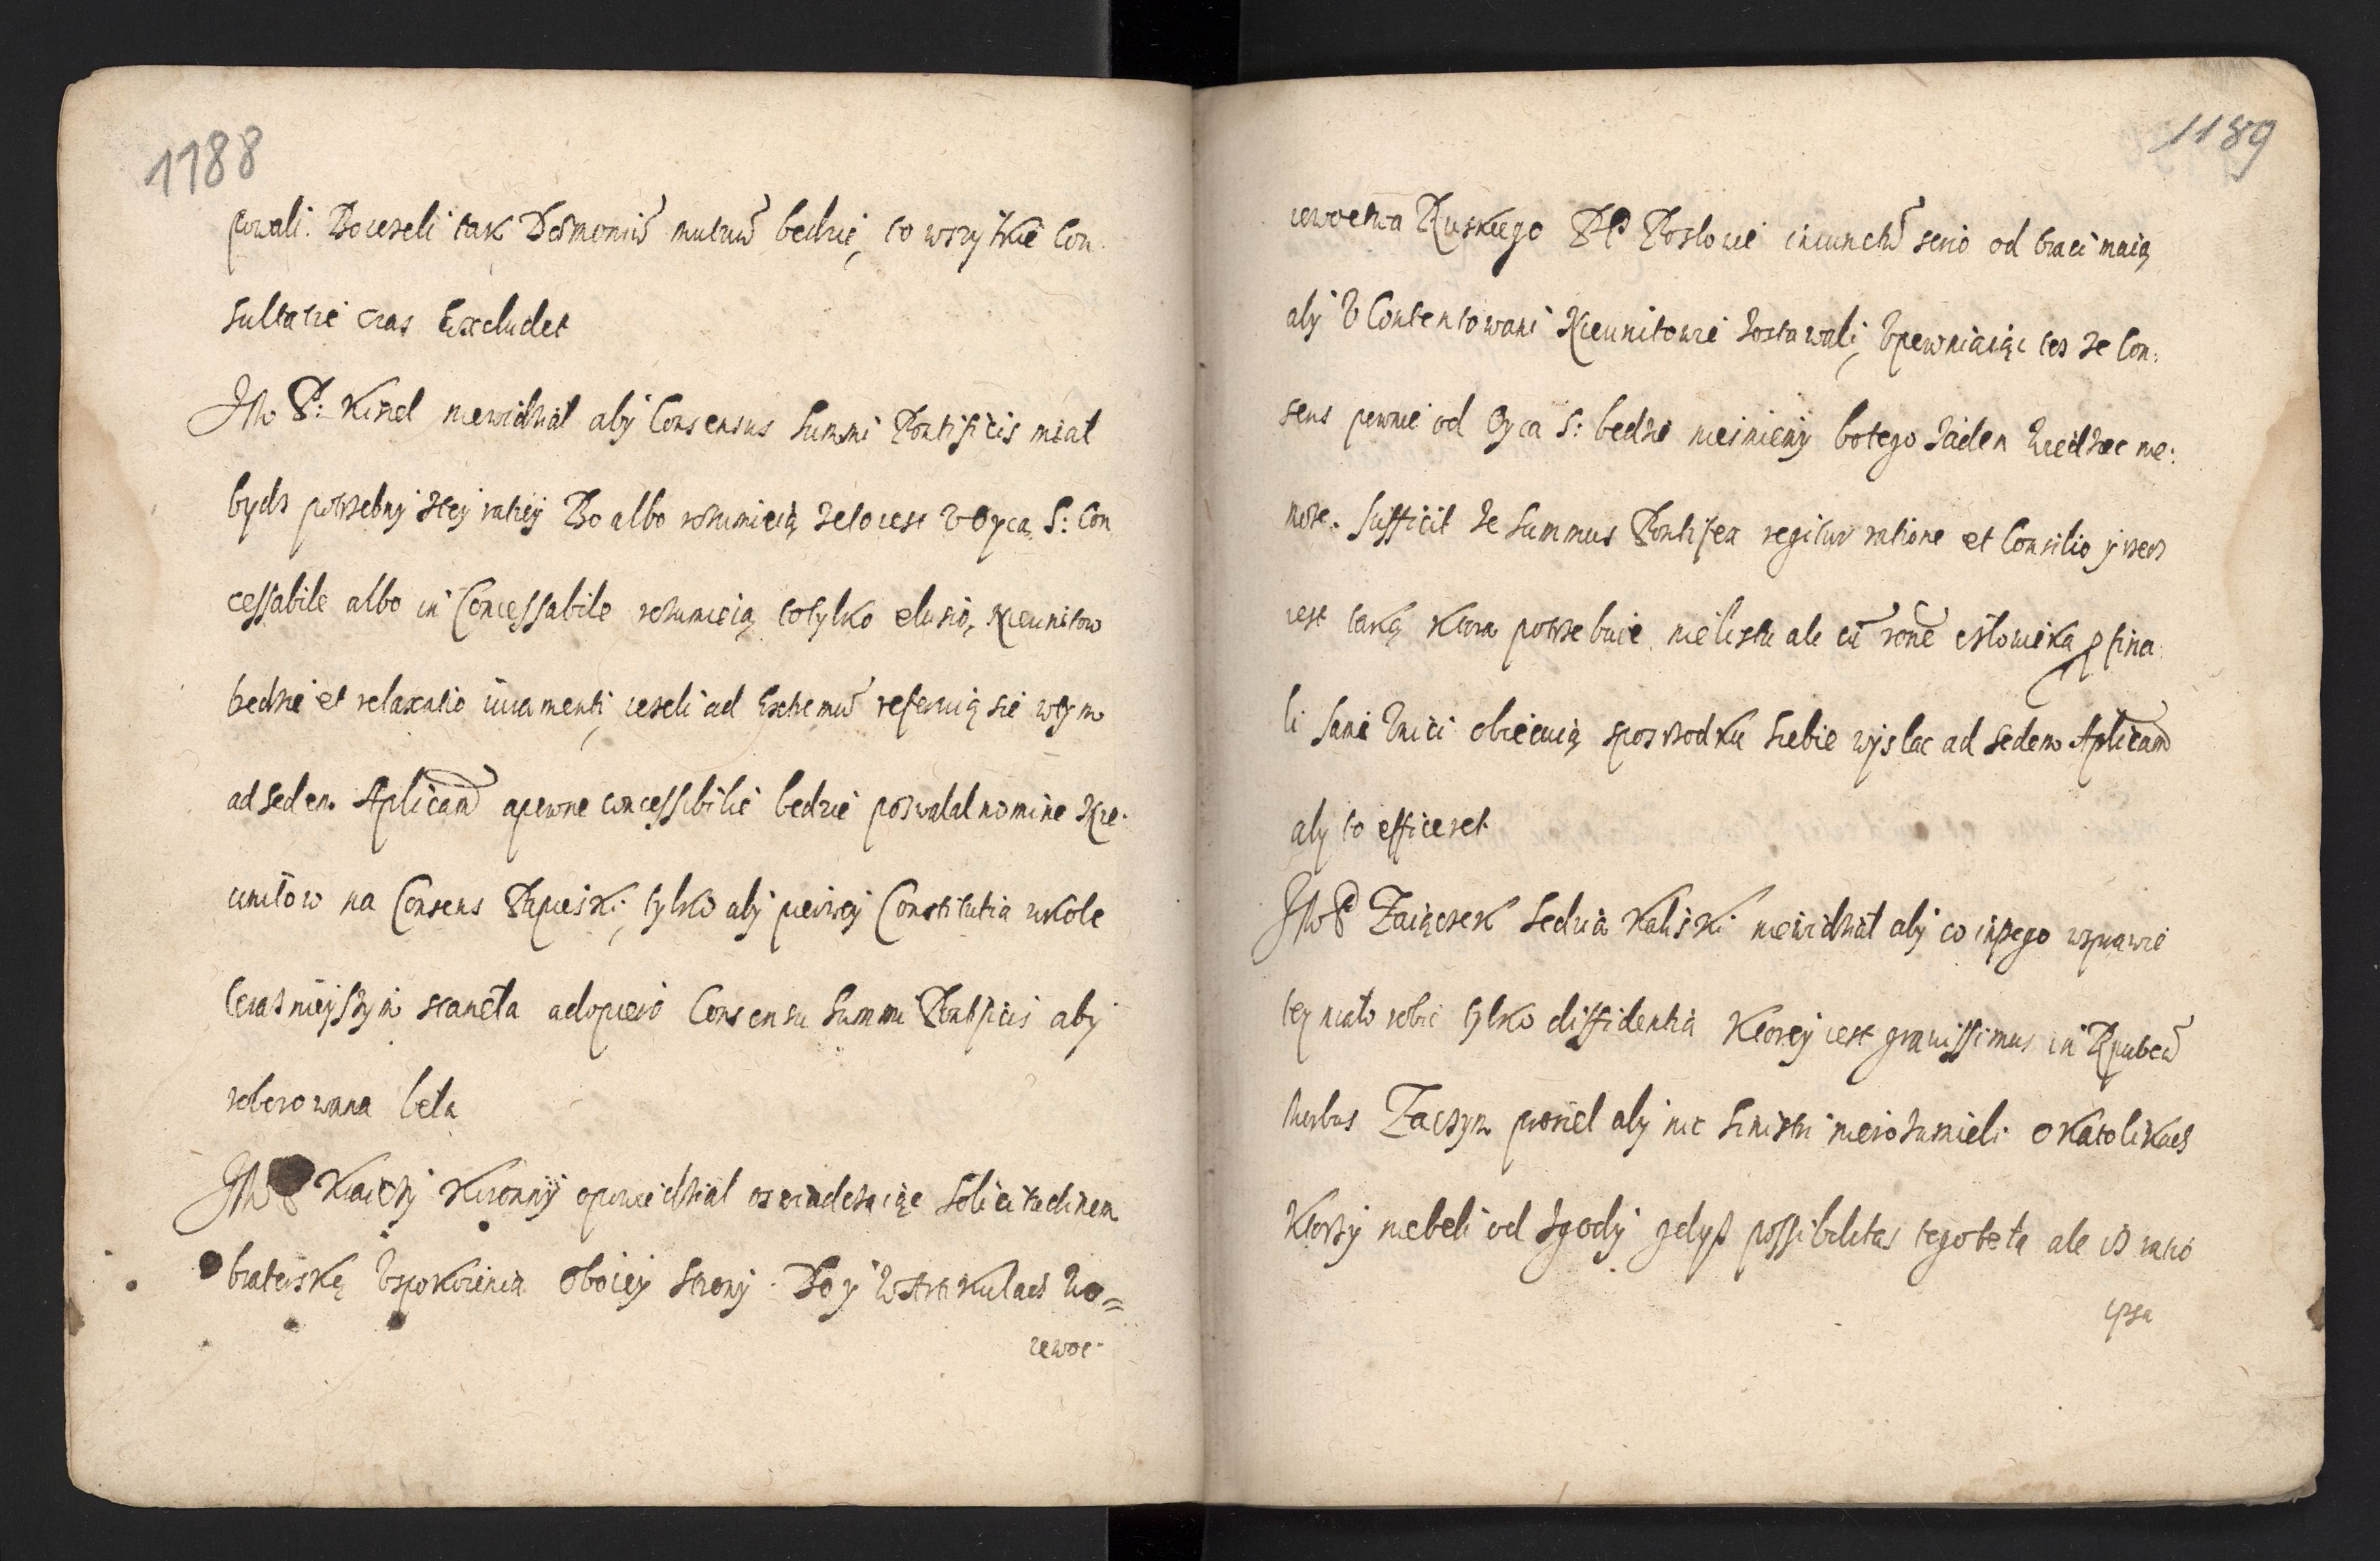 1188
powali. Bo iezeli tak Daemoniū mutuū bedzie, to wszytkie con
sultatie cras Excludet
JM P: Kisiel niewidział aby Consensus Summi Pontificis miał
bydz potrzebny z tey ratiey Bo albo rozumieią ze to iest v Oyca S: Con
cessabile albo in Concessabile rozumieią to tylko elusio, Nieunitow
bedzie et relaxatio iuramenti, iezeli ad Extremū referuią sie w tym
ad sedem Aplicam̄ a pewne concessibilie bedzie pozwalał nomine Nie
unitow na Consens Papieski; tylko aby pierwey Constitutia w kole
teraznieyszym staneła a dopiero Consensu Summi Pontificis aby
roborowana beła
JM P Kraiczy Koronny opowiedział oswiadczaiąc solicitudinem
braterską vspokoienia oboiey strony. Bo y w Artikulach Wo=
iewoc
1189
iewoctwa Ruskiego PP Posłowie iniunctū serio od braci maią
aby v Contentowani Nieunitowie zostawali, vpewniaiąc tez ze Con:
sens pewnie od Oyca S: bedzie nieinieny bo tego zaden wiedziec nie:
moze. Sufficit ze Summus Pontifex regitur ratione et Consilio y rzecz
iest taką ktora potrzebuie nie listu ale cū rōne człowieka p fina
li sami Vnici obiecuią sposrzodku siebie wysłac ad Sedem Aplicam̄
aby to efficeret
JM P Zaiączek Sedzia Kaliski niewidział aby co inszego w sprawie
tey miało robic tylko diffidentia ktorey iest grauissimus in Rpubcā
morbus Zaczym prosiel aby nic sinistri nierozumieli o Katolikach
ktorzy niebeli od zgody gdysz possibilitas tego beła ale is ratio
ipsa